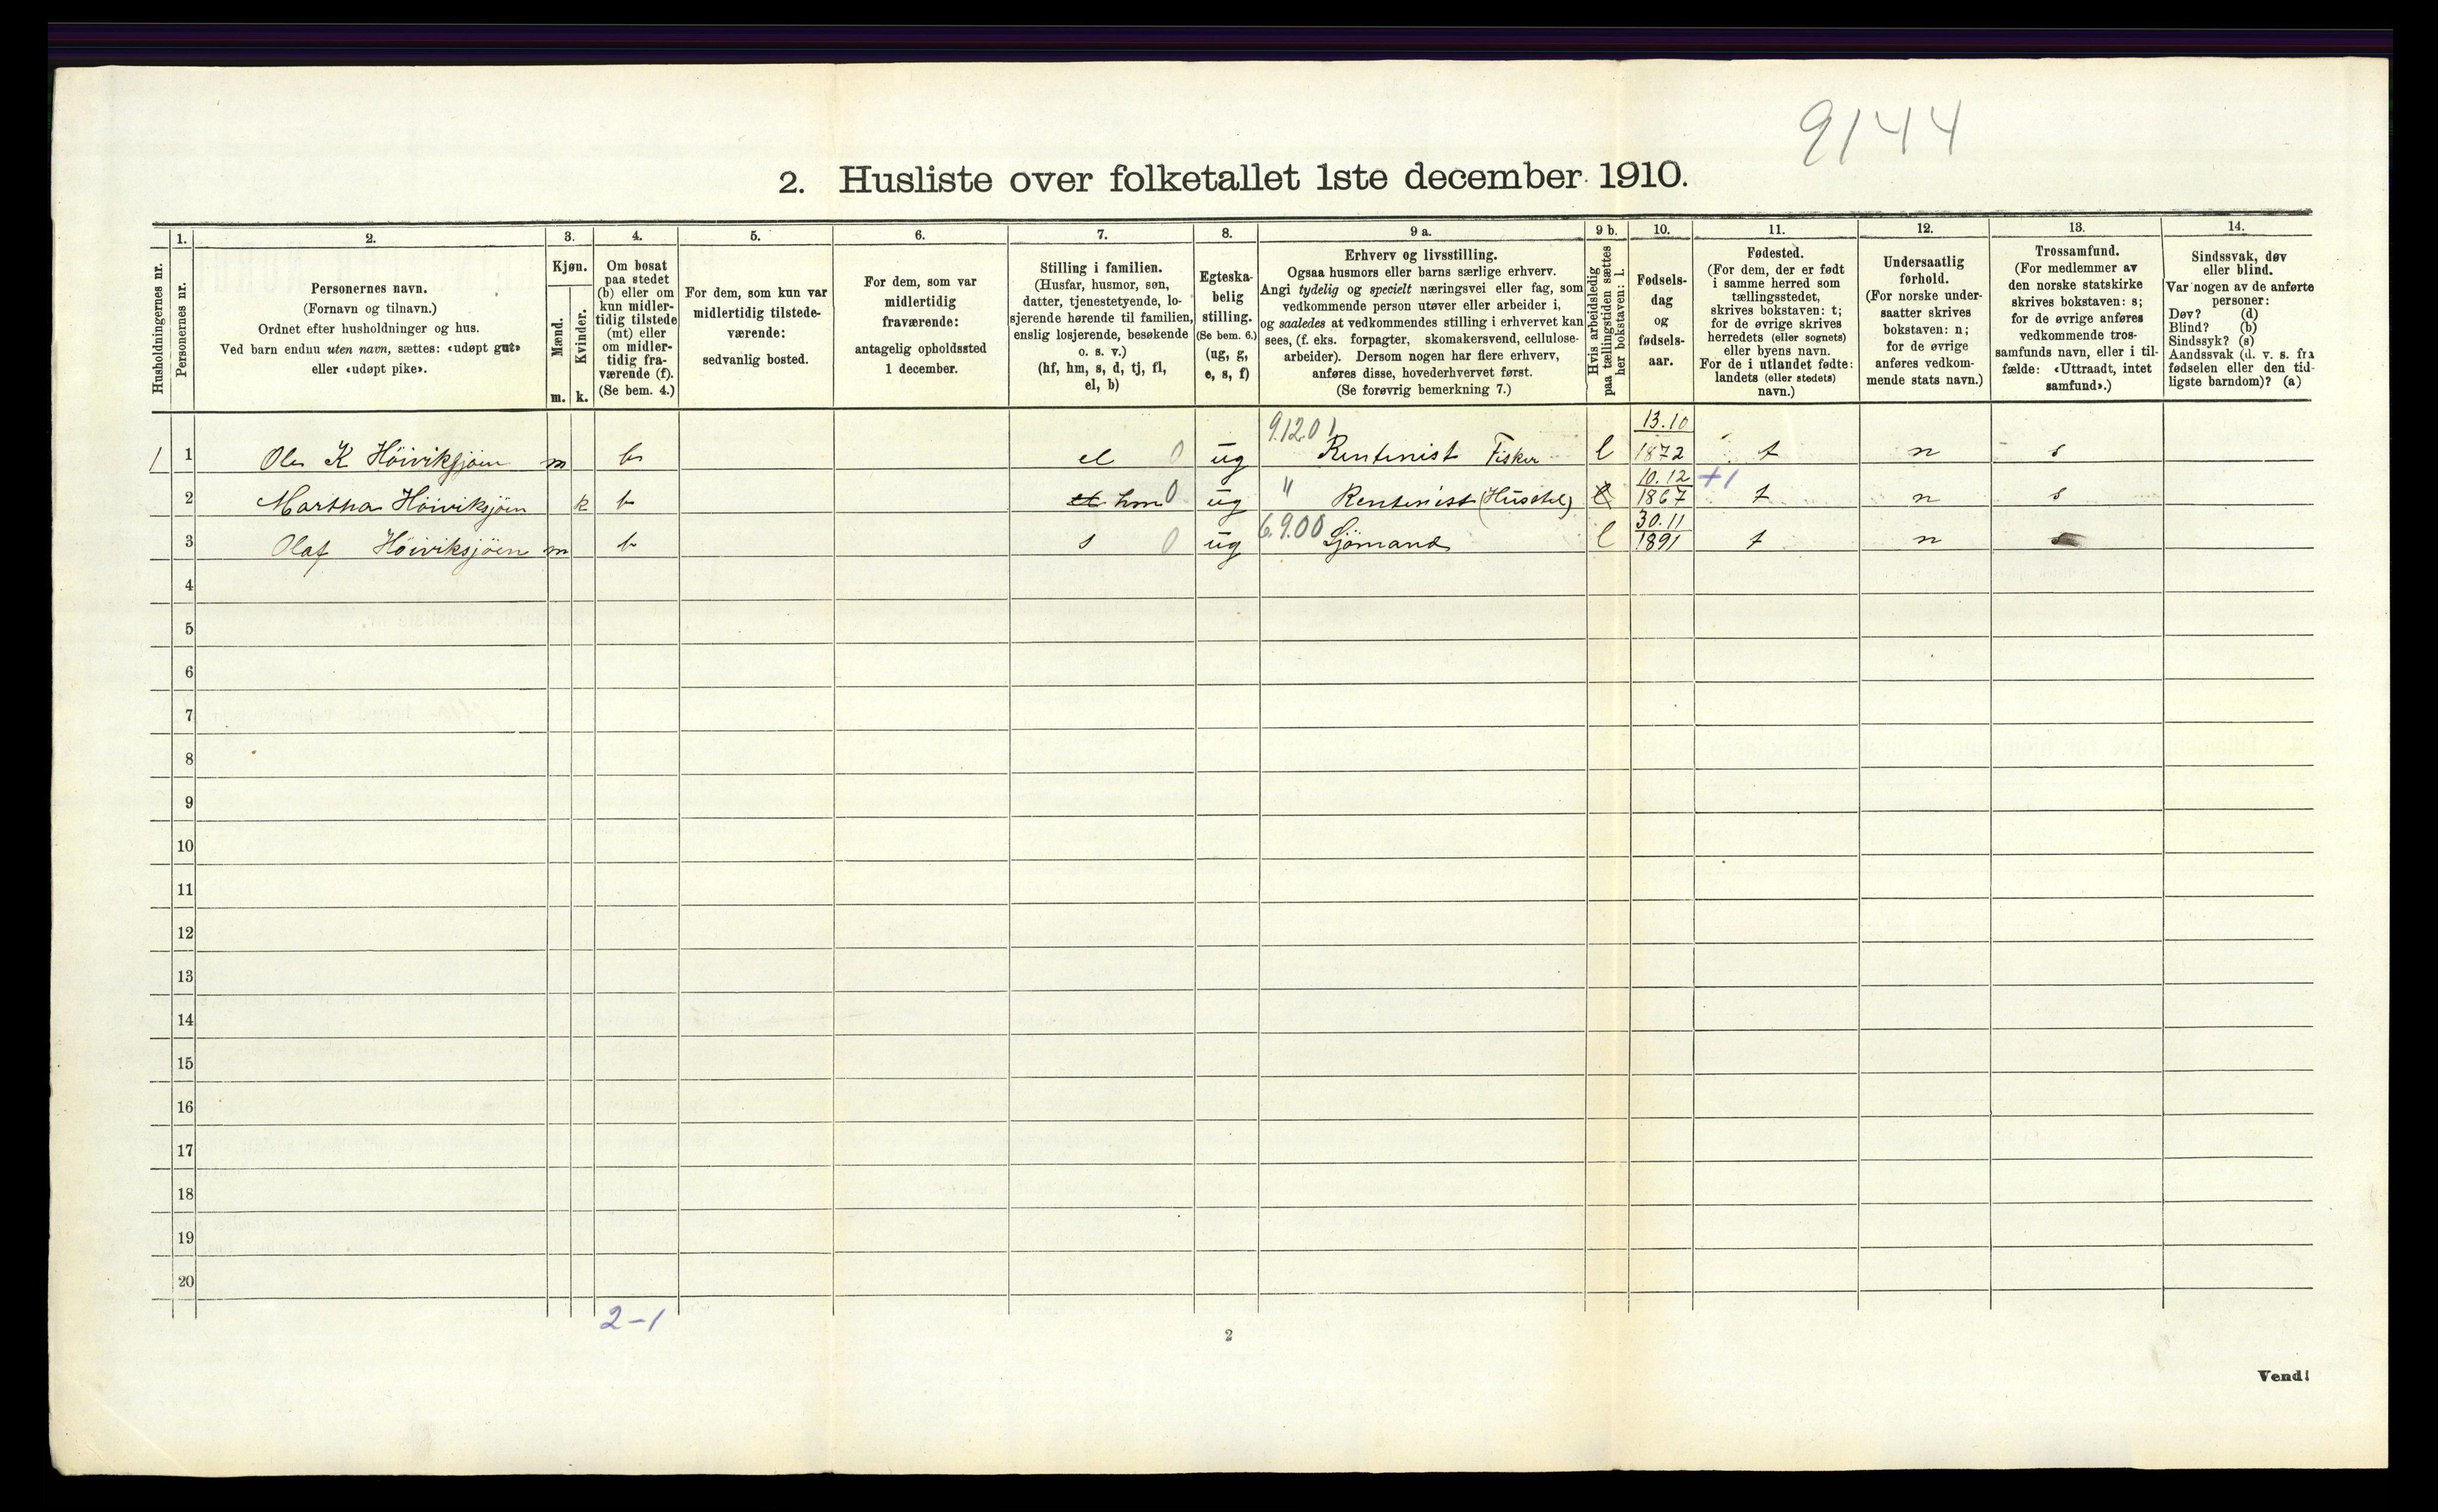 9144
2. Husliste over folketallet 1ste december 1910.
Husholdningernes nr.
1.
Personernes nr.
2.
Personernes navn.
(Fornavn og tilnavn.)
Ordnet efter husholdninger og hus.
Ved barn endnu uten navn, sættes: «udøpt gut»
eller «udøpt pike».
3.
Kjøn.
Mænd.
Kvinder.
m. k.
4.
Om bosat
paa stedet
(b) eller om
kun midler-
tidig tilstede
(mt) eller
om midler-
tidig fra-
værende (f).
(Se bem. 4.)
5.
For dem, som kun var
midlertidig tilstede-
værende:
sedvanlig bosted.
6.
For dem, som var
midlertidig
fraværende:
antagelig opholdssted
1 december.
7.
Stilling i familien.
(Husfar, husmor, søn,
datter, tjenestetyende, lo-
sjerende hørende til familien,
enslig losjerende, besøkende
o. s. v.)
(hf, hm, s, d, tj, fl,
el, b)
8.
Egteska-
belig
stilling.
(Se bem. 6.)
(ug, g,
e, s, f)
9 a.
Erhverv og livsstilling.
Ogsaa husmors eller barns særlige erhverv.
Angi tydelig og specielt næringsvei eller fag, som
vedkommende person utøver eller arbeider i,
og saaledes at vedkommendes stilling i erhvervet kan
sees, (f. eks. forpagter, skomakersvend, cellulose-
arbeider). Dersom nogen har flere erhverv,
anføres disse, hovederhvervet først.
(Se forøvrig bemerkning 7.)
9 b.
Hvis arbeidsledig
paa tællingstiden sættes
her bokstaven: l.
10.
Fødsels-
dag
og
fødsels-
aar.
11.
Fødested.
(For dem, der er født
i samme herred som
tællingsstedet,
skrives bokstaven: t;
for de øvrige skrives
herredets (eller sognets)
eller byens navn.
For de i utlandet fødte:
landets (eller stedets)
navn.)
12.
Undersaatlig
forhold.
(For norske under-
saatter skrives
bokstaven: n;
for de øvrige
anføres vedkom-
mende stats navn.)
13.
Trossamfund.
(For medlemmer av
den norske statskirke
skrives bokstaven: s;
for de øvrige anføres
vedkommende tros-
samfunds navn, eller i til-
fælde: «Uttraadt, intet
samfund».)
14.
Sindssvak, døv
eller blind.
Var nogen av de anførte
personer:
Døv? (d)
Blind? (b)
Sindssyk? (s)
Aandssvak (d. v. s. fra
fødselen eller den tid-
ligste barndom)? (a)
9.12.01 13.10
1 1 Ole K Höiviksjöen m b el 0 ug Rentenist Fisker l 1872 t n s
10.12 +1
2 Martha Höiviksjöen k b el hm 0 ug " Rentenist (Husstel) l 1867 t n s
6.9.00 30.11
3 Olaf Höiviksjöen m b s 0 ug Sjömand l 1891 t n s
4
5
6
7
8
9
10
11
12
13
14
15
16
17
18
19
20
2-1
2
Vend!